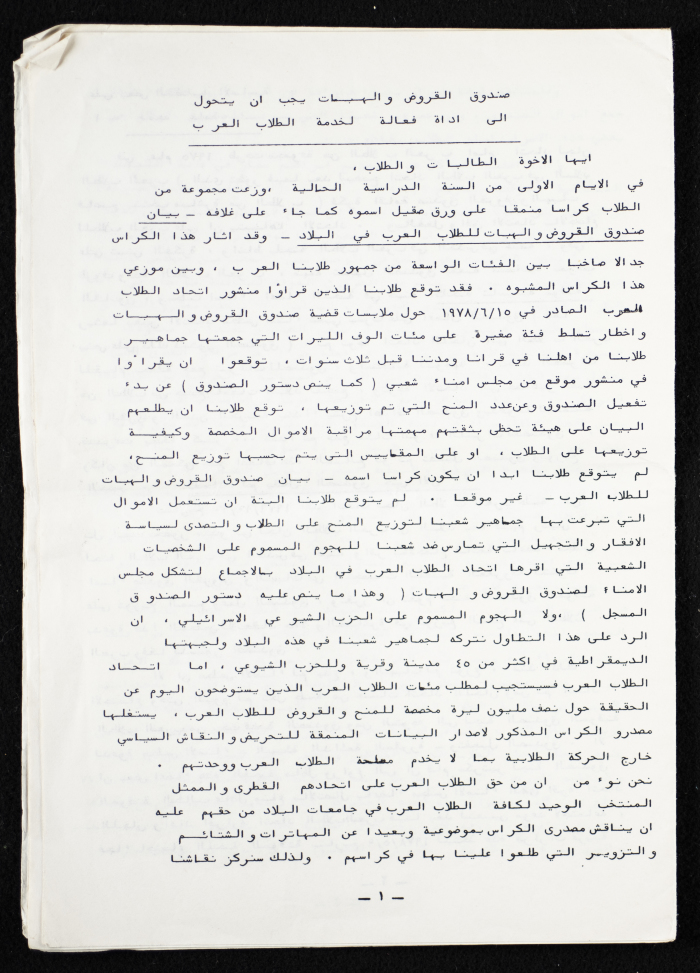 صندوق القروض والهبات يجب ان يتحول
الى اداة فعالة لخدمة الطلاب العرب
ايها الاخوة الطالبات والطلاب ،
في الايام الاولى من السنة الدراسية الحالية ،وزعت مجموعة من
الطلاب كراسا منمقا على ورق صقيل اسموه كما جاء على غلافه - بيان
صندوق القروض والهبات للطلاب العرب في البلاد - وقد اثار هذا الكراس
جدالا صاخبا بين الفئات الواسعة من جمهور طلابنا العرب ، وبين موزعي
هذا الكراس المشبوه . فقد توقع طلابنا الذين قراوا منشور اتحاد الطلاب
العرب الصادر في ١٩٧٨/٦/١٥ حول ملابسات قضية صندوق القروض والهبات
واخطار تسلط فئة صغيرة على مئات الوف الليرات التي جمعتها جماهير
طلابنا من اهلنا في قرانا ومدننا قبل ثلاث سنوات ، توقعوا ان يقراوا
في منشور موقع من مجلس امناء شعبي ( كما ينص دستور الصندوق ) عن بدء
تفعيل الصندوق وعن عدد المنح التي تم توزيعها ، توقع طلابنا ان يطلعهم
البيان على هيئة تحظى بثقتهم مهمتها مراقبة الاموال المخصصة وكيفية
توزيعها على الطلاب ، او على المقاييس التى يتم بحسبها توزيع المنح،
لم يتوقع طلابنا ابدا ان يكون كراسا اسمه - بيان صندوق القروض والهبات
للطلاب العرب - غير موقعا . لم يتوقع طلابنا البتة ان تستعمل الاموال
التي تبرعت بها جماهير شعبنا لتوزيع المنح على الطلاب والتصدى لسياسة
الافقار والتجهيل التي تمارس ضد شعبنا للهجوم المسموم على الشخصيات
الشعبية التي اقرها اتحاد الطلاب العرب في البلاد بالاجماع لتشكل مجلس
الامناء لصندوق القروض والهبات ( وهذا ما ينص عليه دستور الصندوق
المسجل ) ،ولا الهجوم المسموم على الحزب الشيوعي الاسرائيلي ، ان
الرد على هذا التطاول نتركه لجماهير شعبنا في هذه البلاد ولجبهتها
الديمقراطية في اكثر من ٤٥ مدينة وقرية وللحزب الشيوعي ، اما اتحاد
الطلاب العرب فسيستجيب لمطلب مئات الطلاب العرب الذين يستوضحون اليوم عن
الحقيقة حول نصف مليون ليرة مخصصة للمنح والقروض للطلاب العرب ، يستغلها
مصدرو الكراس المذكور لاصدار البيانات المنمقة للتحريض والنقاش السياسي
خارج الحركة الطلابية بما لا يخدم مصلحة الطلاب العرب ووحدتهم .
نحن نوءمن ان من حق الطلاب العرب على اتحادهم القطرى والممثل
المنتخب الوحيد لكافة الطلاب العرب في جامعات البلاد من حقهم عليه
ان يناقش مصدرى الكراس بموضوعية وبعيدا عن المهاترات والشتائم
والتزوير التي طلعوا علينا بها في كراسهم . ولذلك سنركز نقاشنا
- ١ -